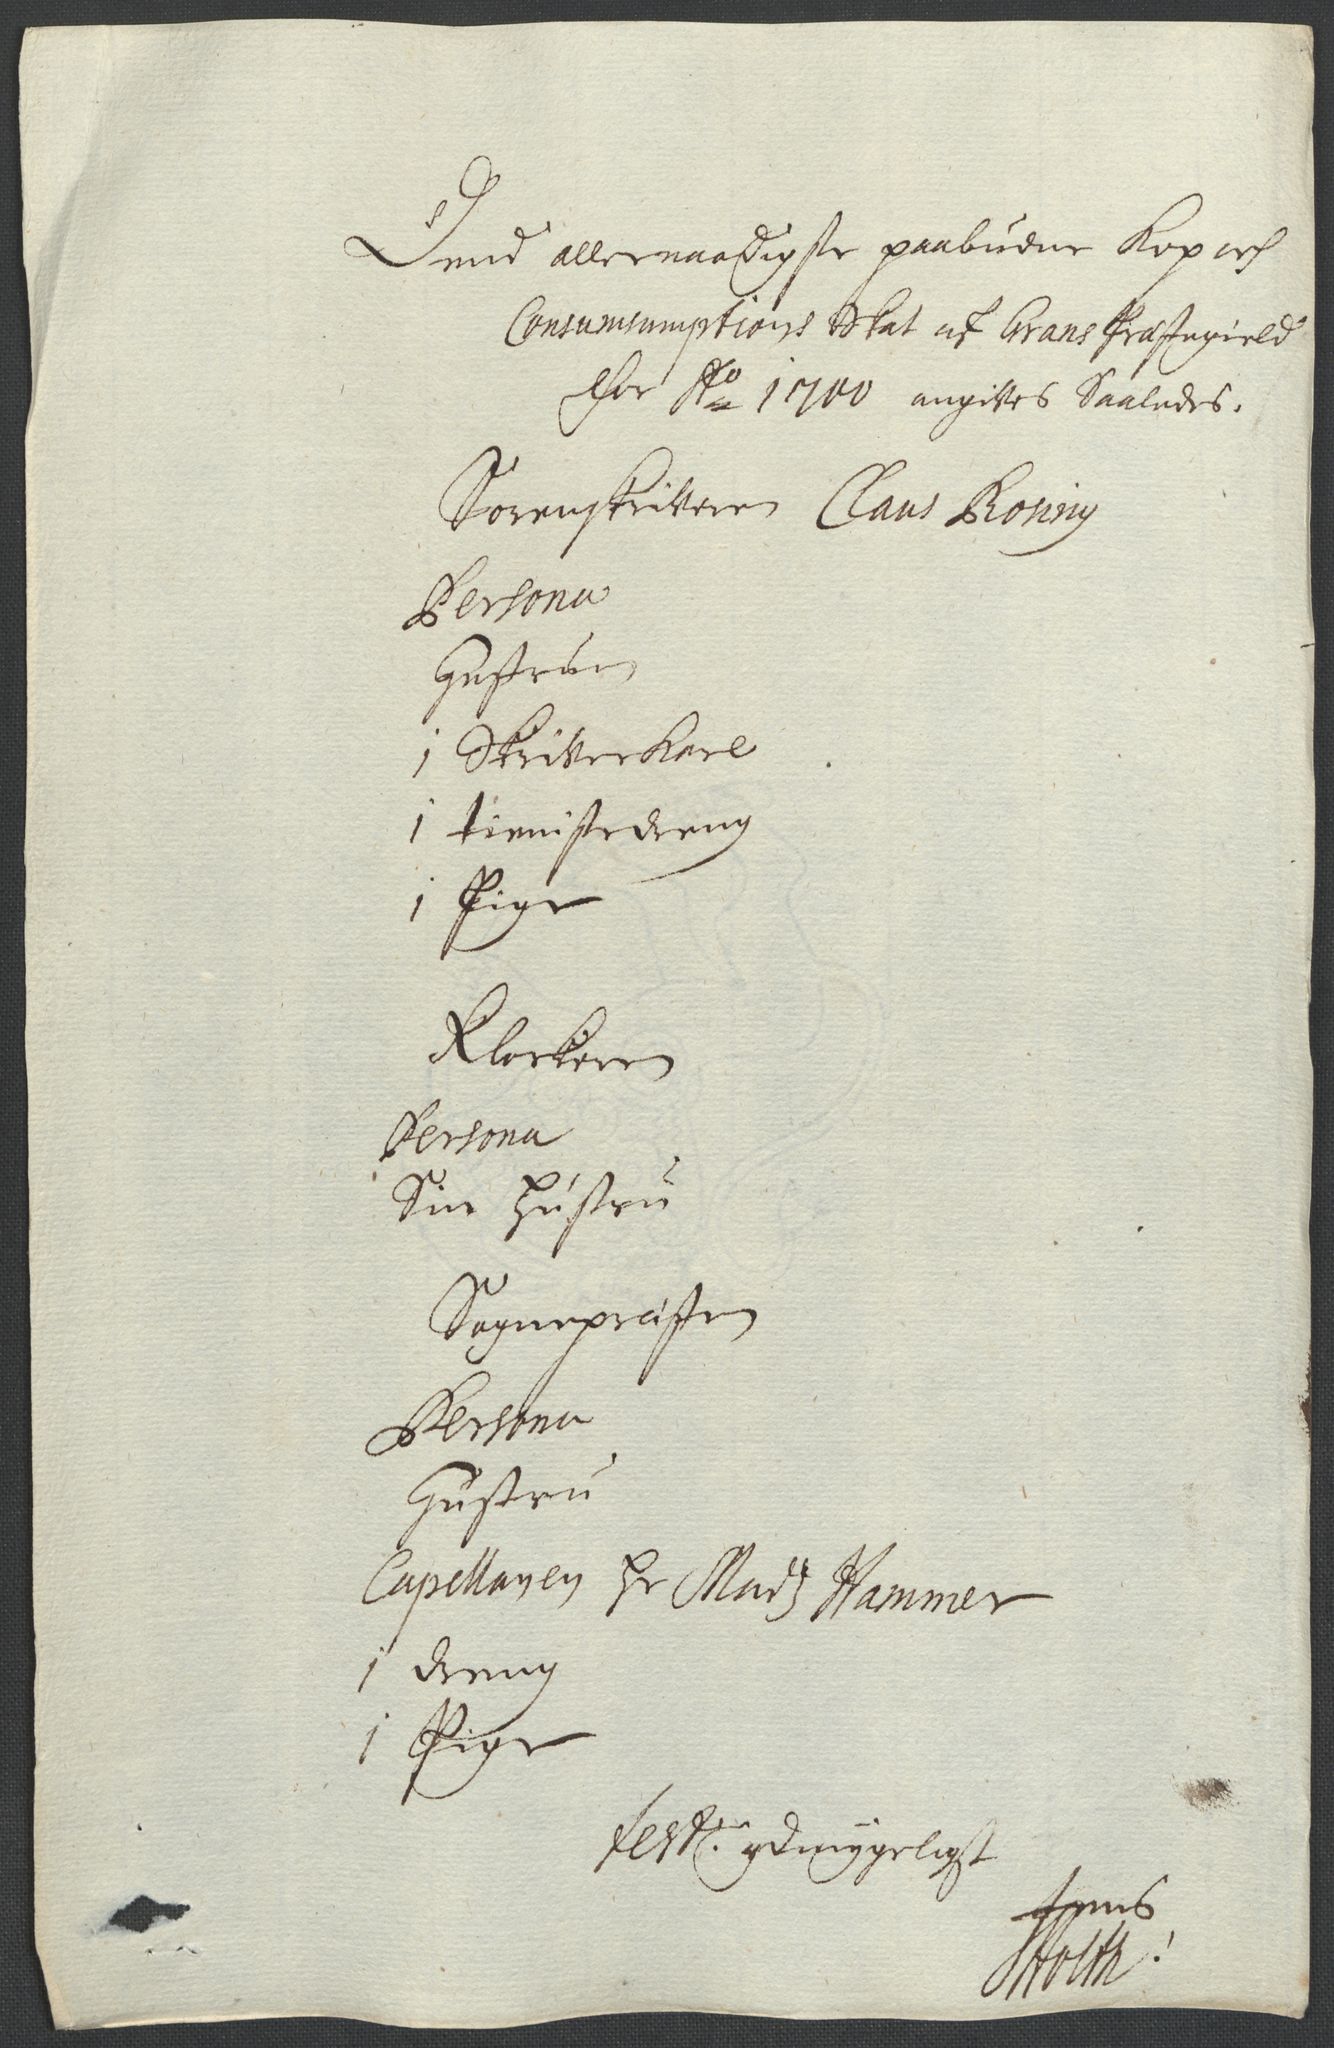 Dend allernaadigste paabudne Kop och
Consumsumptions Skat af Grans Præstegield
for Ao 1700 angives Saaledes.
Sorenskriveren Claus Rosing
Persona
Hustruen
1 Skriver Karl
1 tienistedreng
1 Pige
Klockeren
Persona
Sin Hustru
Sognepræsten
Persona
Hustru
Capellanen Hr Madz Hammer
1 dreng
1 Pige
test: ydmygeligst
Jens
Holth